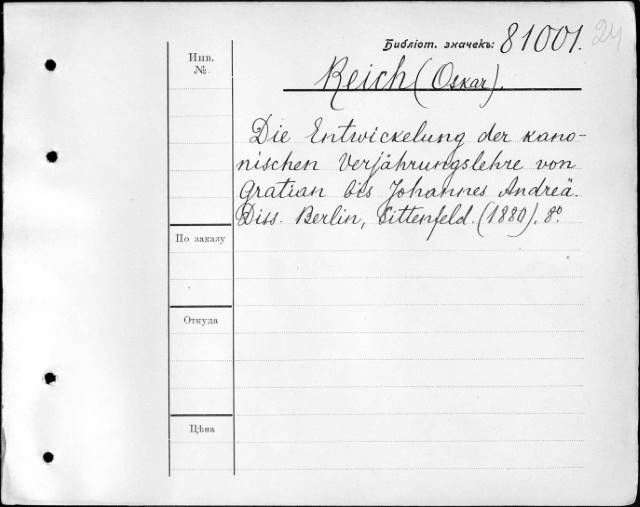 Библіот. значекъ: 81001. 24
Инв.
№
Reich (Oskar).
Die Entwickelung der kano-
nischen Verjährungslehre von
Gratian bis Johannes Andreä.
Diss. Berlin, Sittenfeld. (1880). 8°.
По заказу
Откуда
Цѣна